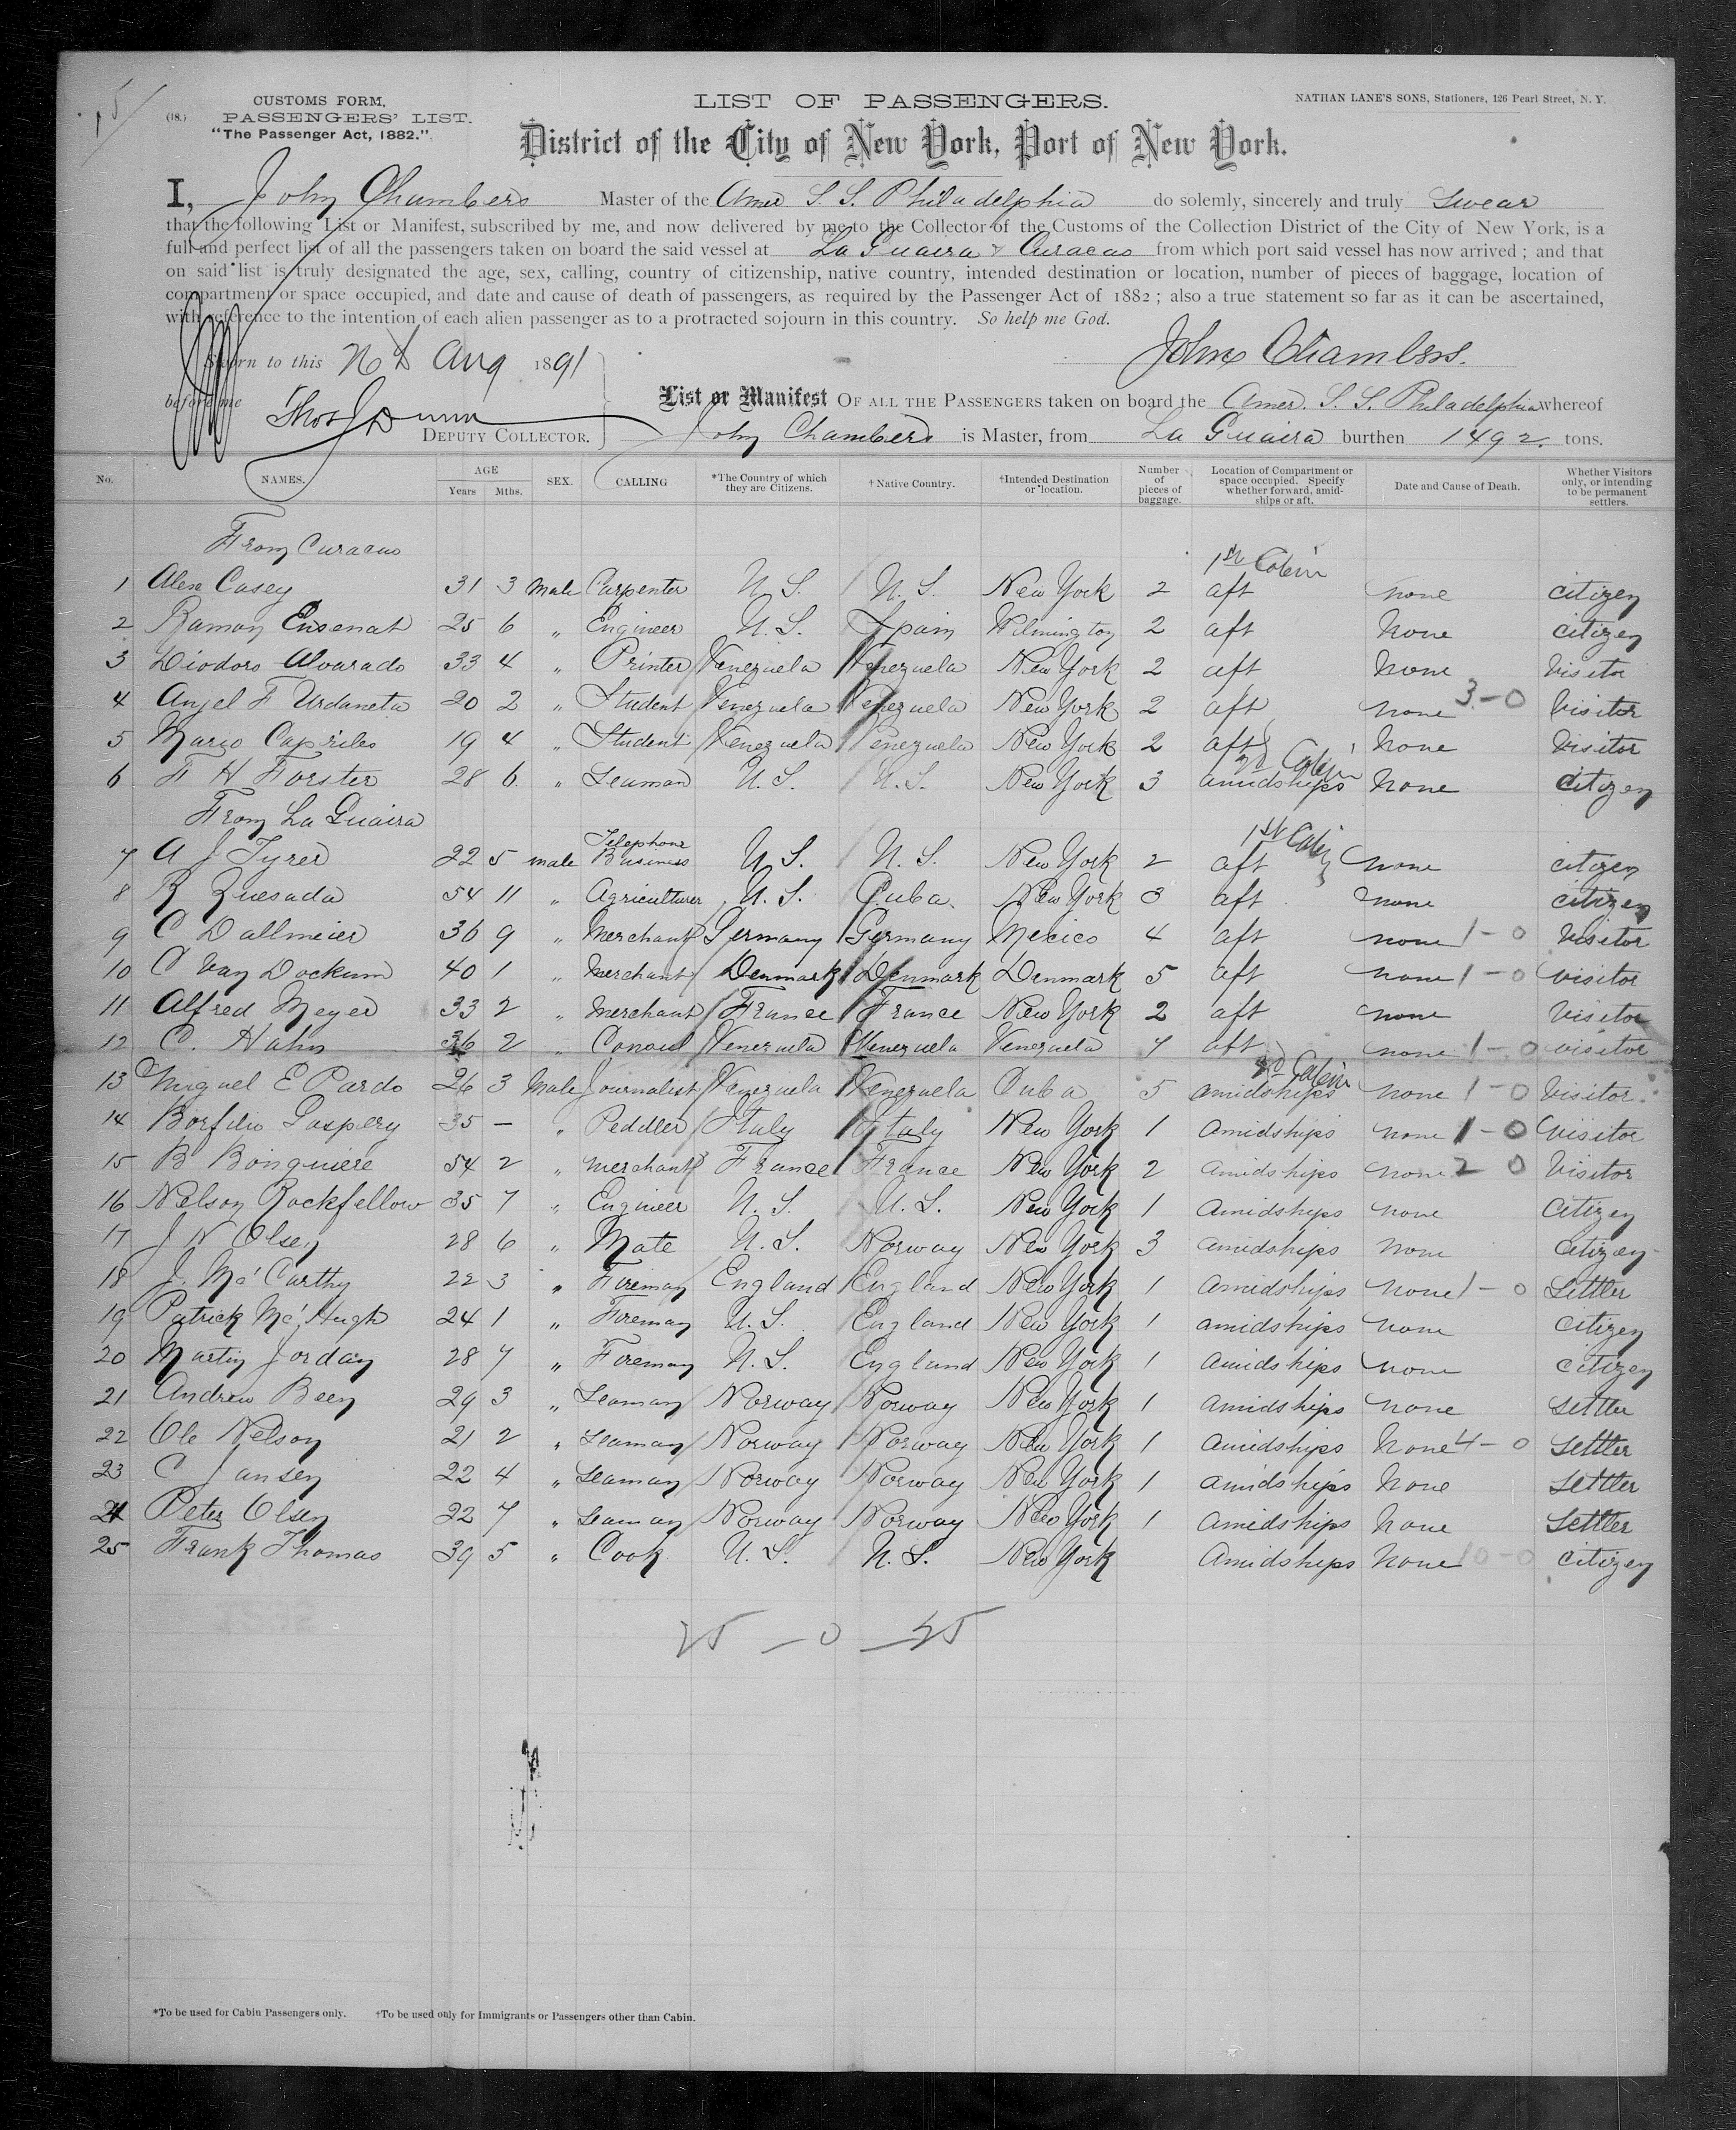 15/
(18.) CUSTOMS FORM.
PASSENGERS' LIST.
"The Passenger Act, 1882."
LIST OF PASSENGERS.
NATHAN LANE'S SONS, Stationers, 126 Pearl Street, N. Y.
District of the City of New York, Port of New York.
I, John Chambers Master of the Amer S. S. Philadelphia do solemly, sincerely and truly swear
that the following List or Manifest, subscribed by me, and now delivered by me to the Collector of the Customs of the Collection District of the City of New York, is a
full and perfect list of all the passengers taken on board the said vessel at La Guaira & Curacao from which port said vessel has now arrived; and that
on said list is truly designated the age, sex, calling, country of citizenship, native country, intended destination or location, number of pieces of baggage, location of
compartment or space occupied, and date and cause of death of passengers, as required by the Passenger Act of 1882; also a true statement so far as it can be ascertained,
with reference to the intention of each alien passenger as to a protracted sojourn in this country. So help me God.
Sworn to this Aug 1891 John Chambers.
before me Thos J Dunn
DEPUTY COLLECTOR.
List or Manifest OF ALL THE PASSENGERS taken on board the Amer. S. S. Philadelphia whereof
John Chambers is Master, from La Guaira burthen 1492. tons.
No. NAMES. AGE Years Mths. SEX. CALLING *The Country of which they are Citizens. †Native Country. †Intended Destination or location. Number of pieces of baggage. Location of Compartment or space occupied. Specify whether forward, amidships or aft. Date and Cause of Death. Whether Visitors only, or intending to be permanent settlers.
From Curacao
1st Cabin
1 Alex Casey 31 3 Male Carpenter U. S. U. S. New York 2 aft none citizen
2 Ramon Ensenat 25 6 " Engineer U. S. Spain Wilmington 2 aft None citizen
3 Diodoro Alvarado 33 4 " Printer Venezuela Venezuela New York 2 aft None Visitor
4 Angel F Urdaneta 20 2 " Student Venezuela Venezuela New York 2 aft none 3-0 Visitor
5 Margo Capriles 19 4 " Student Venezuela Venezuela New York 2 aft None Visitor
2d Cabin
6 F H Forster 28 6 " Seaman U. S. U. S. New York 3 amidships None citizen
From La Guaira
1st Cabin
7 A J Tyrer 22 5 male Telephone Business U. S. U. S. New York 2 aft none citizen
8 R Quesada 54 11 " Agriculturer U. S. Cuba. New York 3 aft none citizen
9 C Dallmeier 36 9 " Merchant Germany Germany Mexico 4 aft none 1-0 Visitor
10 C Van Dockum 40 1 " Merchant Denmark Denmark Denmark 5 aft none 1-0 visitor
11 Alfred Meyer 33 2 " Merchant France France New York 2 aft none Visitor
12 C. Hahn 36 2 " Consul Venezuela Venezuela Venezuela 7 aft none 1-0 visitor
2d Cabin
13 Miguel E Pardo 26 3 Male Journalist Venezuela Venezuela Cuba 5 amidships none 1-0 Visitor
14 Borfilio Gaspery 35 - " Peddler Italy Italy New York 1 Amidships none 1-0 Visitor
15 B Boinguiere 54 2 " Merchant France France New York 2 Amidships none 2 0 Visitor
16 Nelson Rockfellow 35 7 " Engineer U. S. U. S. New York 1 Amidships none Citizen
17 J N Olsen 28 6 " Mate U. S. Norway New York 3 Amidships none Citizen
18 J. Mc'Carthy 22 3 " Fireman England England New York 1 Amidships none 1-0 Settler
19 Patrick Mc'Hugh 24 1 " Fireman U. S. England New York 1 amidships none citizen
20 Martin Jordan 28 7 " Fireman U. S. England New York 1 Amidships none citizen
21 Andrew Been 29 3 " Seaman Norway Norway New York 1 Amidships none settler
22 Ole Nelson 21 2 " Seaman Norway Norway New York 1 Amidships None 4-0 settler
23 C Jansen 22 4 " Seaman Norway Norway New York 1 Amidships None Settler
24 Peter Olsen 22 7 " Seaman Norway Norway New York 1 Amidships None Settler
25 Frank Thomas 39 5 " Cook U. S. U. S. New York Amidships None 10-0 citizen
25 - 0 - 25
*To be used for Cabin Passengers only. †To be used only for Immigrants or Passengers other than Cabin.